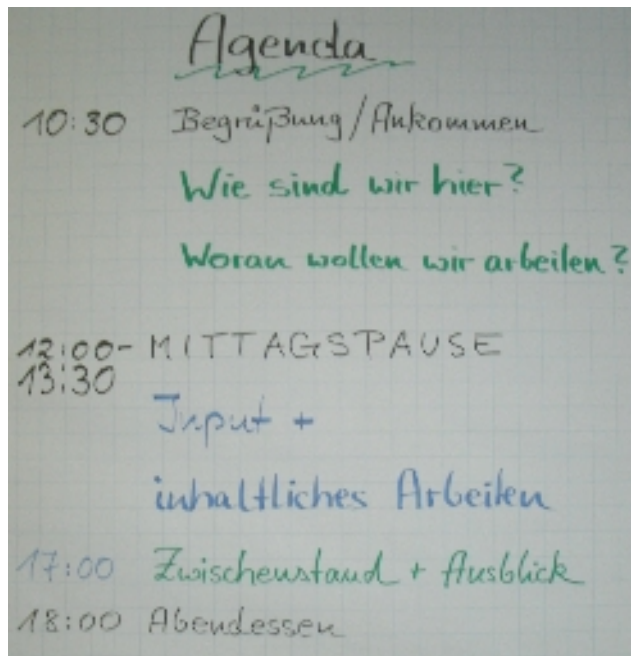 Agenda
10:30 Begrüßung/Ankommen
Wie sind wir hier?
Woran wollen wir arbeiten?
12:00- MITTAGSPAUSE
13:30
Input +
inhaltliches Arbeiten
17:00 Zwischenstand + Ausblick
18:00 Abendessen